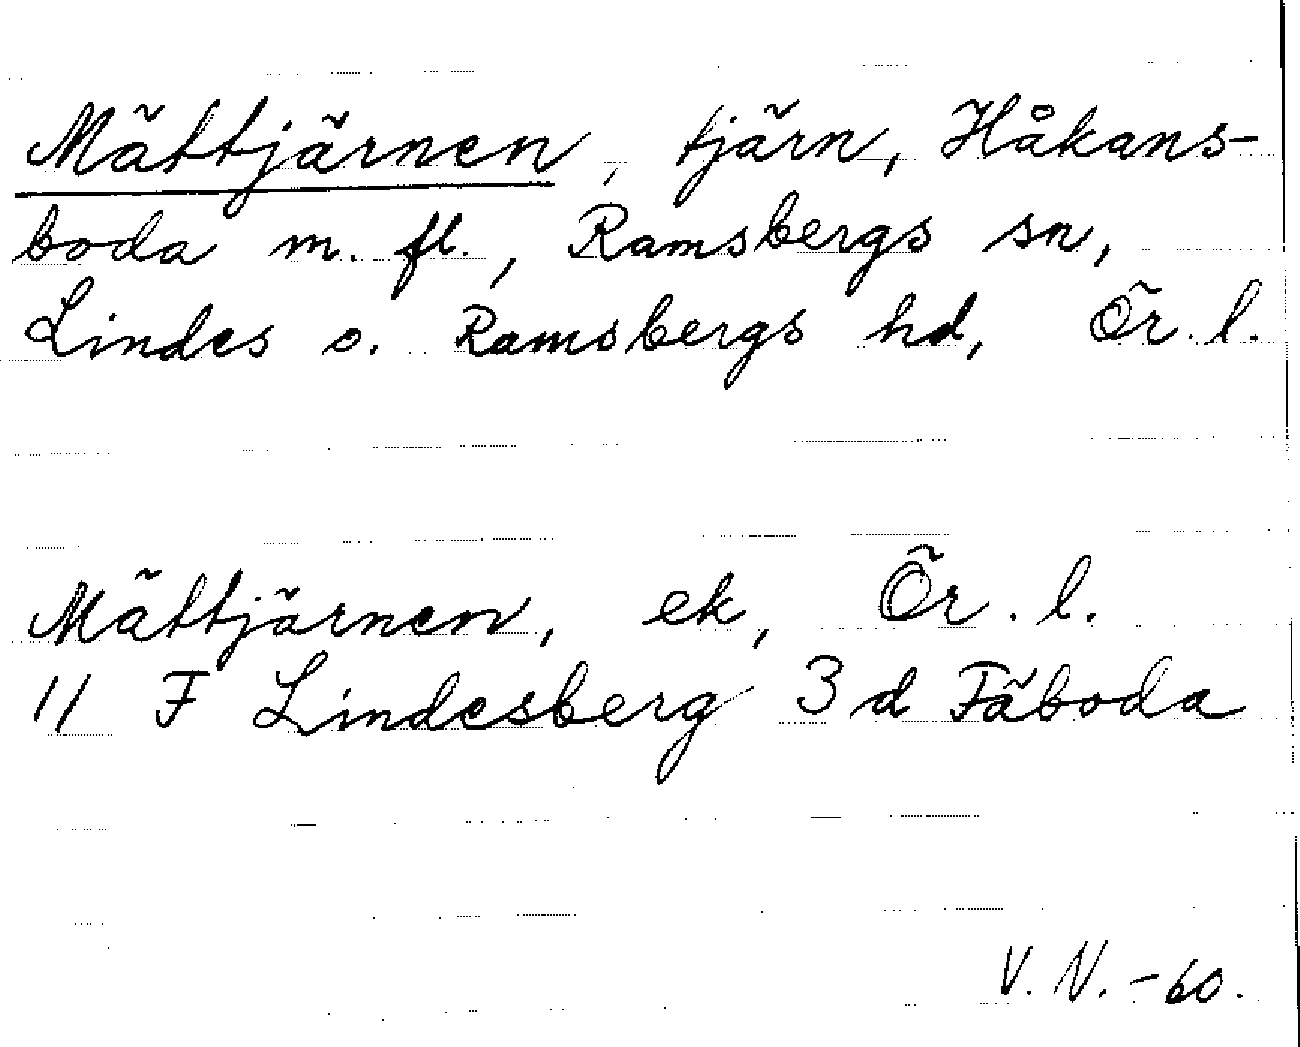 Mättjärnen, tjärn, Håkans-
boda m. fl., Ramsbergs sn,
Lindes o. Ramsbergs hd, Ör. l.
Mättjärnen, ek, Ör. l.
11 F Lindesberg 3 d Fäboda
V. N. -60.